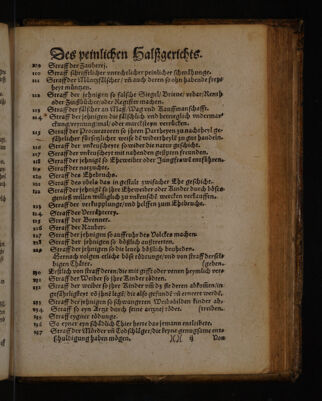 Des peinlichen Halßgerichts.
109 Straff der Zauberej.
110 Straff schrifftlicher unrechtlicher peinlicher schmähunge.
111 Straff der Müntzfälscher/ vñ auch deren so ohn habende frey-
heyt müntzen.
112 Straff der jehnigen so falsche Siegel/ Brieue/ vrbar/ Renth
oder Zinßbücher/ oder Register machen.
113 Straff der fälscher an Maß Wag vnd Kauffmanschafft.
114 Straff der jehnigen die fälschlich vnd betrieglich vndermar-
ckung/
115 Straff der Procuratorn so ihren Partheyen zu nachtheyl ge-
116 Straff der vnkeuscheyt so wider die natur geschicht.
117 Straff der vnkeuscheyt mit nahenden gesipten freunden.
118 Straff der jehnigen so Eheweiber oder Jungfrawẽ entführen.
119 Straff der notzucht.
120 Straff des Ehebruchs.
121 Straff des übels das in gestalt zwifacher Ehe geschicht.
122 Straff der jehnigen so ihre Eheweiber oder Kinder durch böses
genieß willen williglich zu vnkeuscheit verkauffen.
123 Straff der verkupplunge/ vnd helffen zum Ehebruche.
124 Straff der Verräterey.
125 Straff der Brenner.
126 Straff der Rauber.
127 Straff der jehnigen so auffruhr des Volckes machen
128 Straff der jehnigen so bößlich außtretten.
129 Straff der jehnigen so die leut bößlich bevheden.
Hernach volgen etliche böse tödtunge/ vnd von straff der sel-
bigen Thäter. (geben.
130 Erstlich von straff deren/ die mit gifft oder venen heymlich ver-
131 Straff der Weiber so ihre Kinder tödten.
132 Straff der weiber so ihre Kinder
133 Straff der jehnigen so schwangeren Weibsbilden kinder ab-
134 Straff so eyn Artzt durch seine artznei tödtet. (treiben.
135 Straff eygner tödtunge.
136 So eyner eyn schädlich Thier hette das jemann entleibete.
137 Straff der Mörder vñ Todtschläger/ die keyne genugsame ent-
schuldigung haben mögen. ij Von